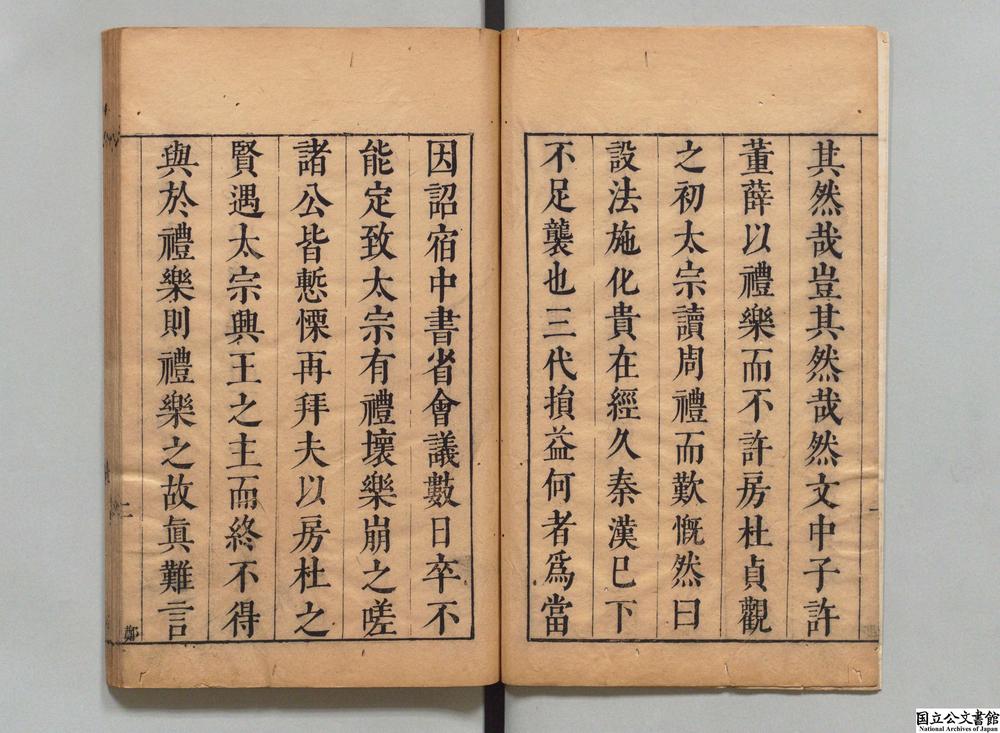 其然哉豈其然哉然文中子許
董薛以禮樂而不許房杜貞觀
之初太宗讀周禮而歎慨然曰
設法施化貴在經久秦漢已下
不足襲也三代損益何者爲當
因詔宿中書省會議數日卒不
能定致太宗有禮壞樂崩之嗟
諸公皆慙慄再拜夫以房杜之
賢遇太宗興王之主而終不得
與於禮樂則禮樂之故眞難言
二
鄭
国立公文書館
National Archives of Japan